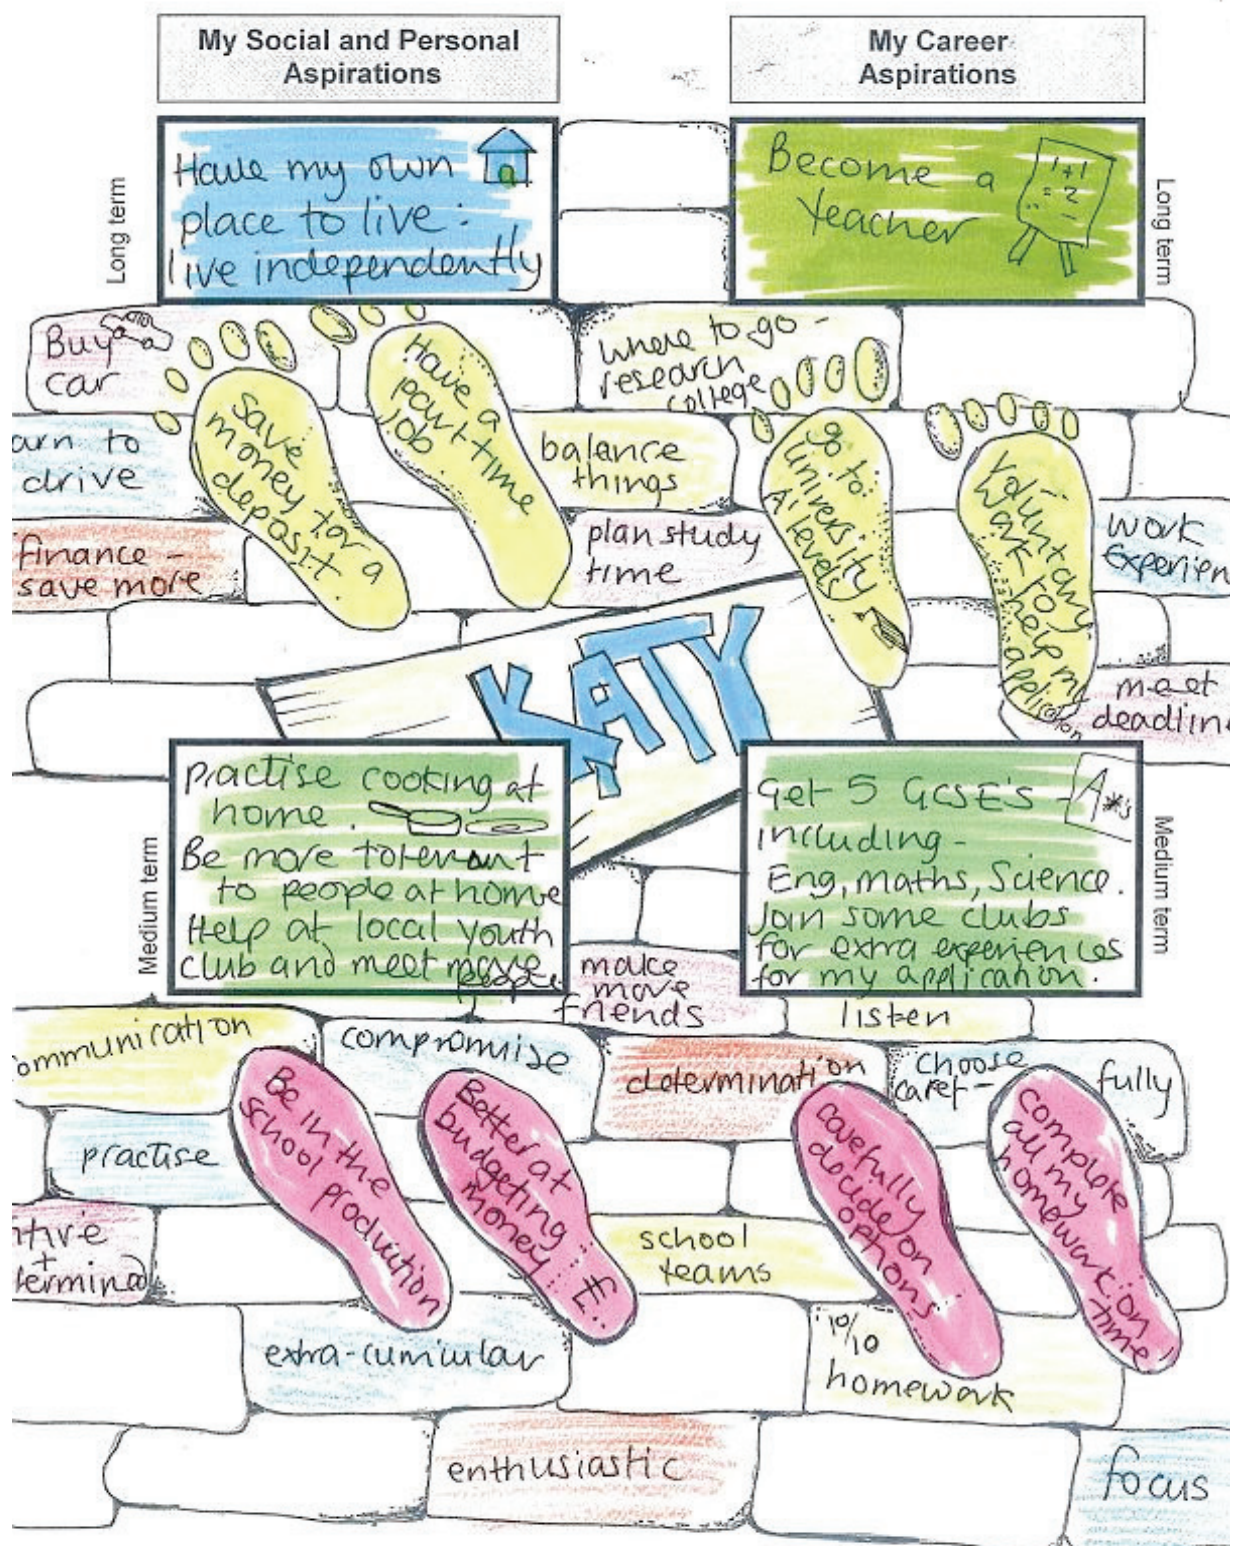 My Social and Personal
Aspirations
My Career
Aspirations
Long term
Have my own
place to live:
live independently
Become a
teacher
1+1
= 2
Long term
Buy
car
Save
money for a
deposit.
Have a
part time
job.
where to go -
research
college
arn to
drive
balance
things
go to
University
A' levels
Voluntary
work to
help my
application
finance -
save more
plan study
time
work
experien
KATY
meet
deadlin
Medium term
Practise cooking at
home.
Be more tolerant
to people at home
Help at local youth
club and meet more
people
Get 5 GCSE's -
A*'s
including -
Eng, maths, Science.
Join some clubs
for extra experiences
for my application.
Medium term
make
more
friends
listen
ommunication
compromise
determination
choose
caref-
fully
Be in the
school
production
Better at
budgeting
money
£
carefully
decide on
options
complete
all my
homework on
time
practise
ntive
+
termined
school
teams
extra-curricular
10/10
homework
enthusiastic
focus